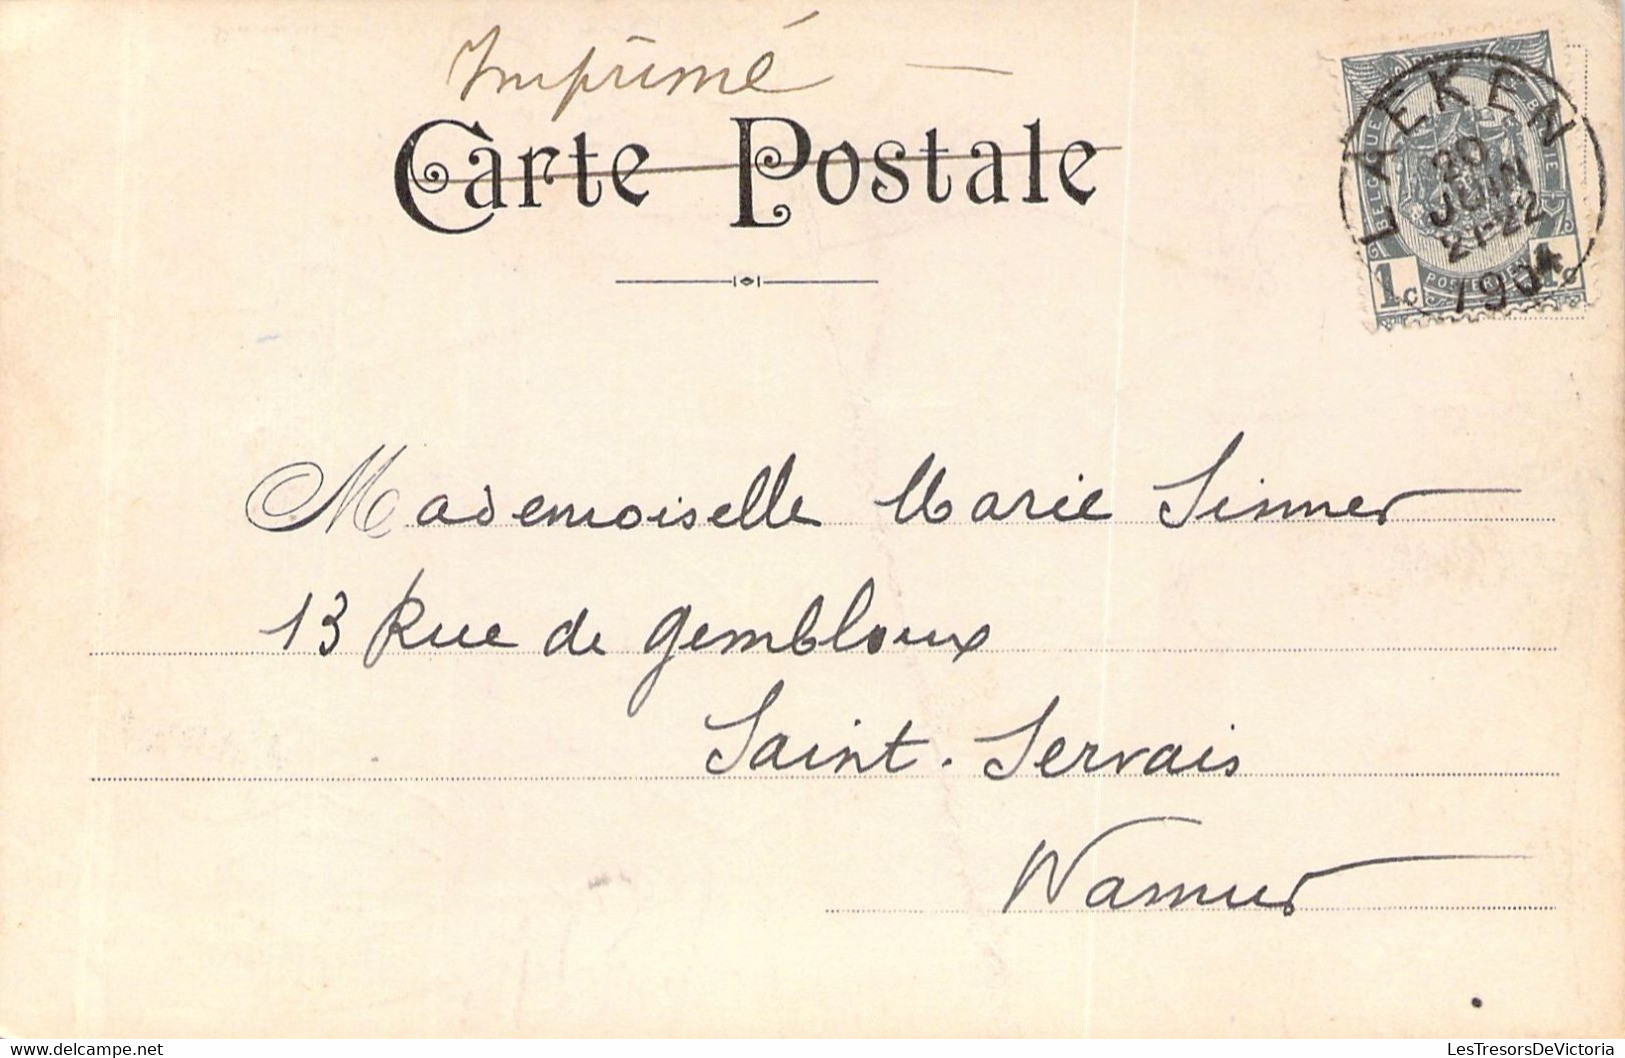 Imprimé —
Carte Postale
LAEKEN
20
JUIN
21-22
1904
BELGIQUE BELGIE
1c 1c
Mademoiselle Marie Sinner
13 Rue de Gembloux
Saint-Servais
Namur
LesTresorsDeVictoria